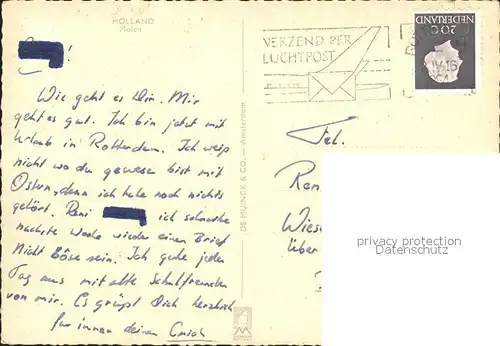 HOLLAND
Molen
!
Wie geht es Dir. Mir
geht es gut. Ich bin jetzt mit
Urlaub in Rotterdam. Ich weiß
nicht wo du gewesen bist mit
Ostern, denn ich habe noch nichts
gehört. Reni ich schreibe
nächste Woche wieder einen Brief
Nicht böse sein. Ich gehe jeden
Tag aus mit alte Schulfreunden
von mir. Es grüßt Dich herzlich
für immer deinen
DE MUINCK & CO. — Amsterdam
VERZEND PER
LUCHTPOST
NEDERLAND
20 C
Ren
Wies
über
privacy protection
DatenSchutz